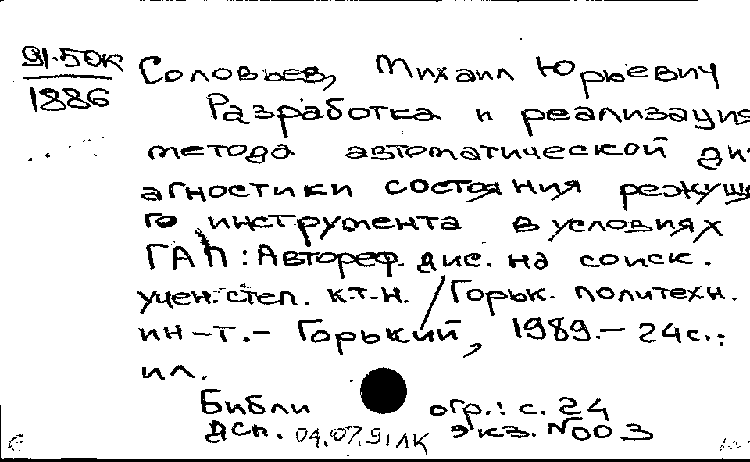 91-50К
1886
Соловьев, Михаил Юрьевич
Разработка и реализация
метода автоматической ди-
агностики состояния режуще-
го инструмента в условиях
ГАП: Автореф. дис. на соиск.
учен. степ. к.т.н. / Горьк. политехн.
ин-т. - Горький, 1989. - 24с.:
ил.
Библиогр.: с. 24
ДСП. 04.07.91 ЛК экз. №003